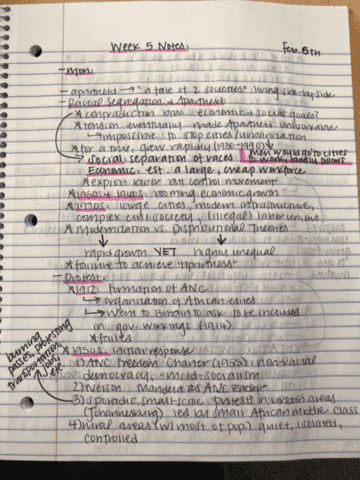 Week 5 Notes:
Feb. 5th
- mon:
- apartheid → "a tale of 2 societies" living side-by-side
- Racial Segregation & Apartheid
* contradiction btwn economic & social goals?
* tension eventually made Apartheid unworkable
↳ impossible to stop cities/urbanization
* for a time, grew rapidly (1930-1990)
→ social: separation of races
men would go to cities to work, family follows
Economic: est. a large, cheap workforce
* exploit labor but control movement
* booming economic growth
* 1970s: large cities, modern infrastructure,
complex civil society, (illegal) labor unions
* modernization vs. Distributional Theories
rapid growth YET highly unequal
* failure to achieve "apartness"
- Protest:
* 1912: formation of ANC
↳ organization of African elites
↳ went to Britain to ask to be included
in gov. workings (1914)
* fails
* 1950s: initial response
1) ANC Freedom Charter (1955): non-racial
democracy, mild-socialism
2) Nelson Mandela as ANC leader
3) sporadic, small-scale protests in urban areas
(Johannesburg) led by small African middle class
burning passes, protesting transportation, etc.
4) rural areas (w/ most of pop.) quiet, isolated,
controlled